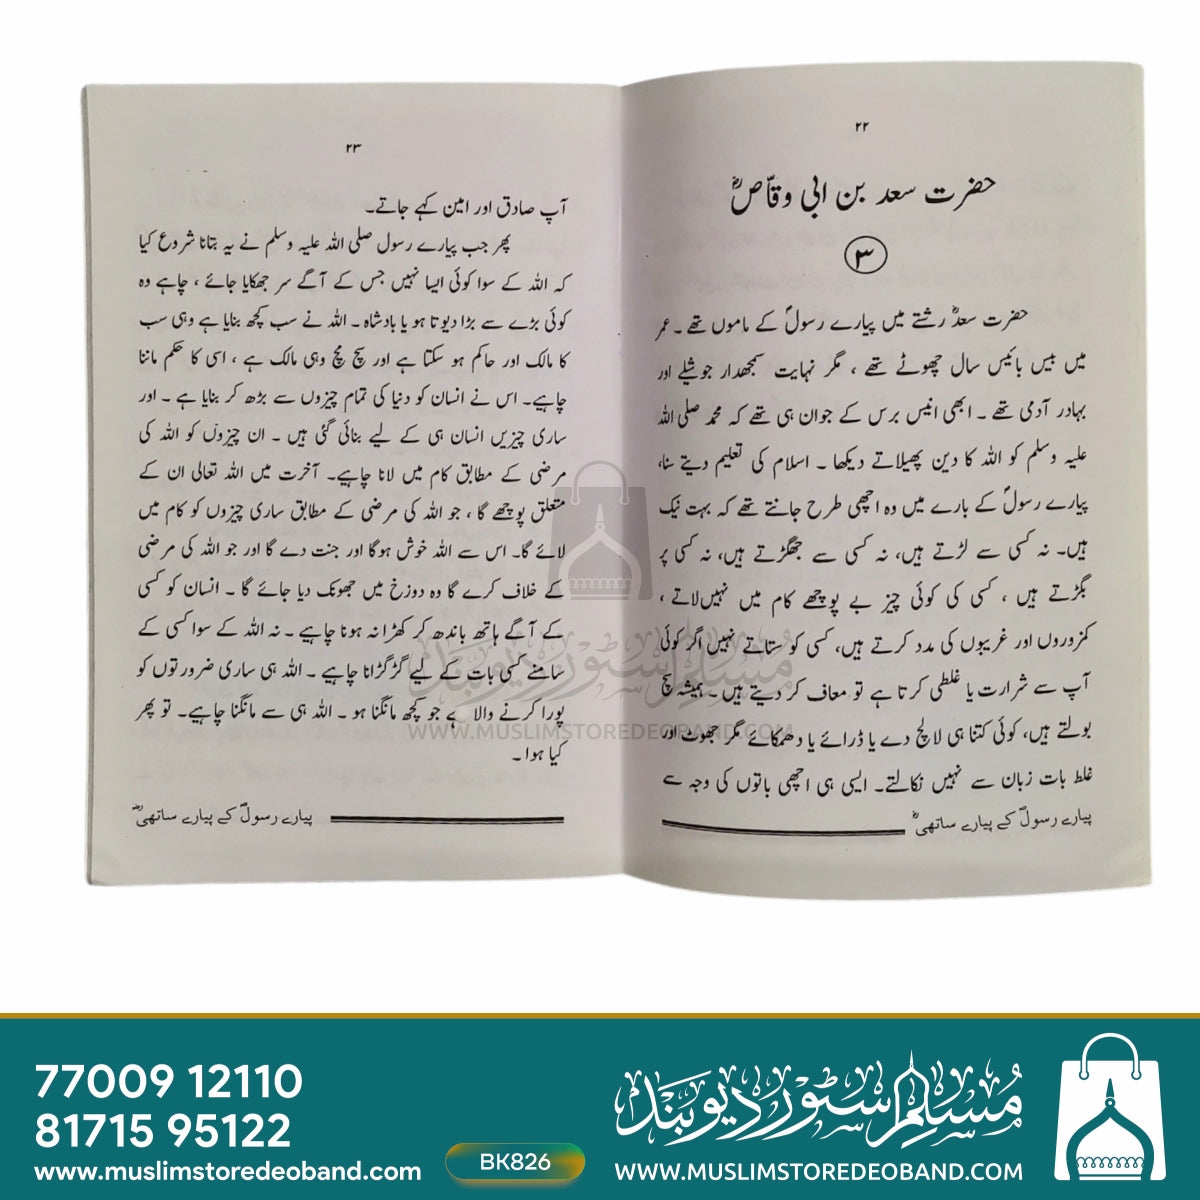 ۲۲
حضرت سعد بن ابی وقّاصؓ
۳
حضرت سعدؓ رشتے میں پیارے رسولؐ کے ماموں تھے ۔ عمر
میں بیس بائیس سال چھوٹے تھے ، مگر نہایت سمجھدار جوشیلے اور
بہادر آدمی تھے ۔ ابھی انیس برس کے جوان ہی تھے کہ محمد صلی اللہ
علیہ وسلم کو اللہ کا دین پھیلاتے دیکھا ۔ اسلام کی تعلیم دیتے سنا،
پیارے رسولؐ کے بارے میں وہ اچھی طرح جانتے تھے کہ بہت نیک
ہیں۔ نہ کسی سے لڑتے ہیں، نہ کسی سے جھگڑتے ہیں، نہ کسی پر
بگڑتے ہیں ، کسی کی کوئی چیز بے پوچھے کام میں نہیں لاتے ،
کمزوروں اور غریبوں کی مدد کرتے ہیں، کسی کو ستاتے نہیں اگر کوئی
آپ سے شرارت یا غلطی کرتا ہے تو معاف کر دیتے ہیں ۔ ہمیشہ سچ
بولتے ہیں، کوئی کتنا ہی لالچ دے یا ڈرائے یا دھمکائے مگر جھوٹ اور
غلط بات زبان سے نہیں نکالتے۔ ایسی ہی اچھی باتوں کی وجہ سے
پیارے رسولؐ کے پیارے ساتھیؓ
۲۳
آپ صادق اور امین کہے جاتے۔
پھر جب پیارے رسول صلی اللہ علیہ وسلم نے یہ بتانا شروع کیا
کہ اللہ کے سوا کوئی ایسا نہیں جس کے آگے سر جھکایا جائے ، چاہے وہ
کوئی بڑے سے بڑا دیوتا ہو یا بادشاہ ۔ اللہ نے سب کچھ بنایا ہے وہی سب
کا مالک اور حاکم ہو سکتا ہے اور سچ مچ وہی مالک ہے ، اسی کا حکم ماننا
چاہیے۔ اس نے انسان کو دنیا کی تمام چیزوں سے بڑھ کر بنایا ہے ۔ اور
ساری چیزیں انسان ہی کے لیے بنائی گئی ہیں ۔ ان چیزوں کو اللہ کی
مرضی کے مطابق کام میں لانا چاہیے۔ آخرت میں اللہ تعالی ان کے
متعلق پوچھے گا ، جو اللہ کی مرضی کے مطابق ساری چیزوں کو کام میں
لائے گا۔ اس سے اللہ خوش ہوگا اور جنت دے گا اور جو اللہ کی مرضی
کے خلاف کرے گا وہ دوزخ میں جھونک دیا جائے گا ۔ انسان کو کسی
کے آگے ہاتھ باندھ کر کھڑا نہ ہونا چاہیے ۔ نہ اللہ کے سوا کسی کے
سامنے کسی بات کے لیے گڑگڑانا چاہیے ۔ اللہ ہی ساری ضرورتوں کو
پورا کرنے والا ہے جو کچھ مانگنا ہو ۔ اللہ ہی سے مانگنا چاہیے۔ تو پھر
کیا ہوا ۔
پیارے رسولؐ کے پیارے ساتھیؓ
مسلم سٹور دیوبند
WWW.MUSLIMSTOREDEOBAND.COM
77009 12110
81715 95122
www.muslimstoredeoband.com
BK826
مسلم سٹور دیوبند
WWW.MUSLIMSTOREDEOBAND.COM